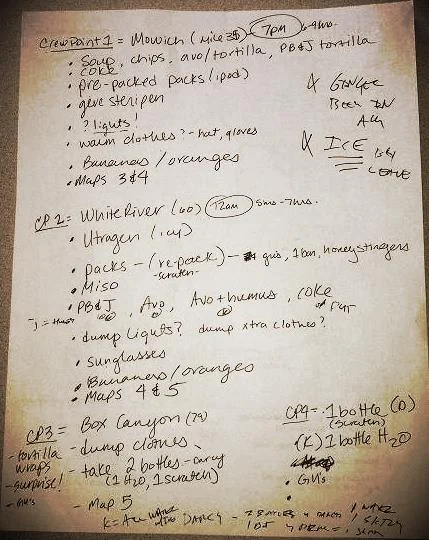 Crew Point 1 = Mowich (mile 35) 7pm
• Soup, chips, avo/tortilla, PB&J tortilla
• COKE
• pre-packed packs (ipod)
• give steripen
• ? lights!
• warm clothes? - hat, gloves
• Bananas/oranges
• Maps 3&4
* GINGER
BEER IN
ALL
* ICE
CP2 = White River (60) 12am 5hrs-7hrs.
• Utragen (icy)
• packs - (re-pack) - gus, 1 bar, honeystingers
-scratch-
• Miso
• PB&J, Avo, Avo + humus, COKE
• dump lights? dump xtra clothes?
• sunglasses
• Bananas/oranges
• Maps 4 & 5
CP3 = Box Canyon (79)
- tortilla wraps
- surprise!
- GU's
- dump clothes
- take 2 bottles - carry
(1 H2O, 1 scratch)
- Map 5
CP4 = 1 bottle (D)
(scratch)
(K) 1 bottle H2O
• GU's